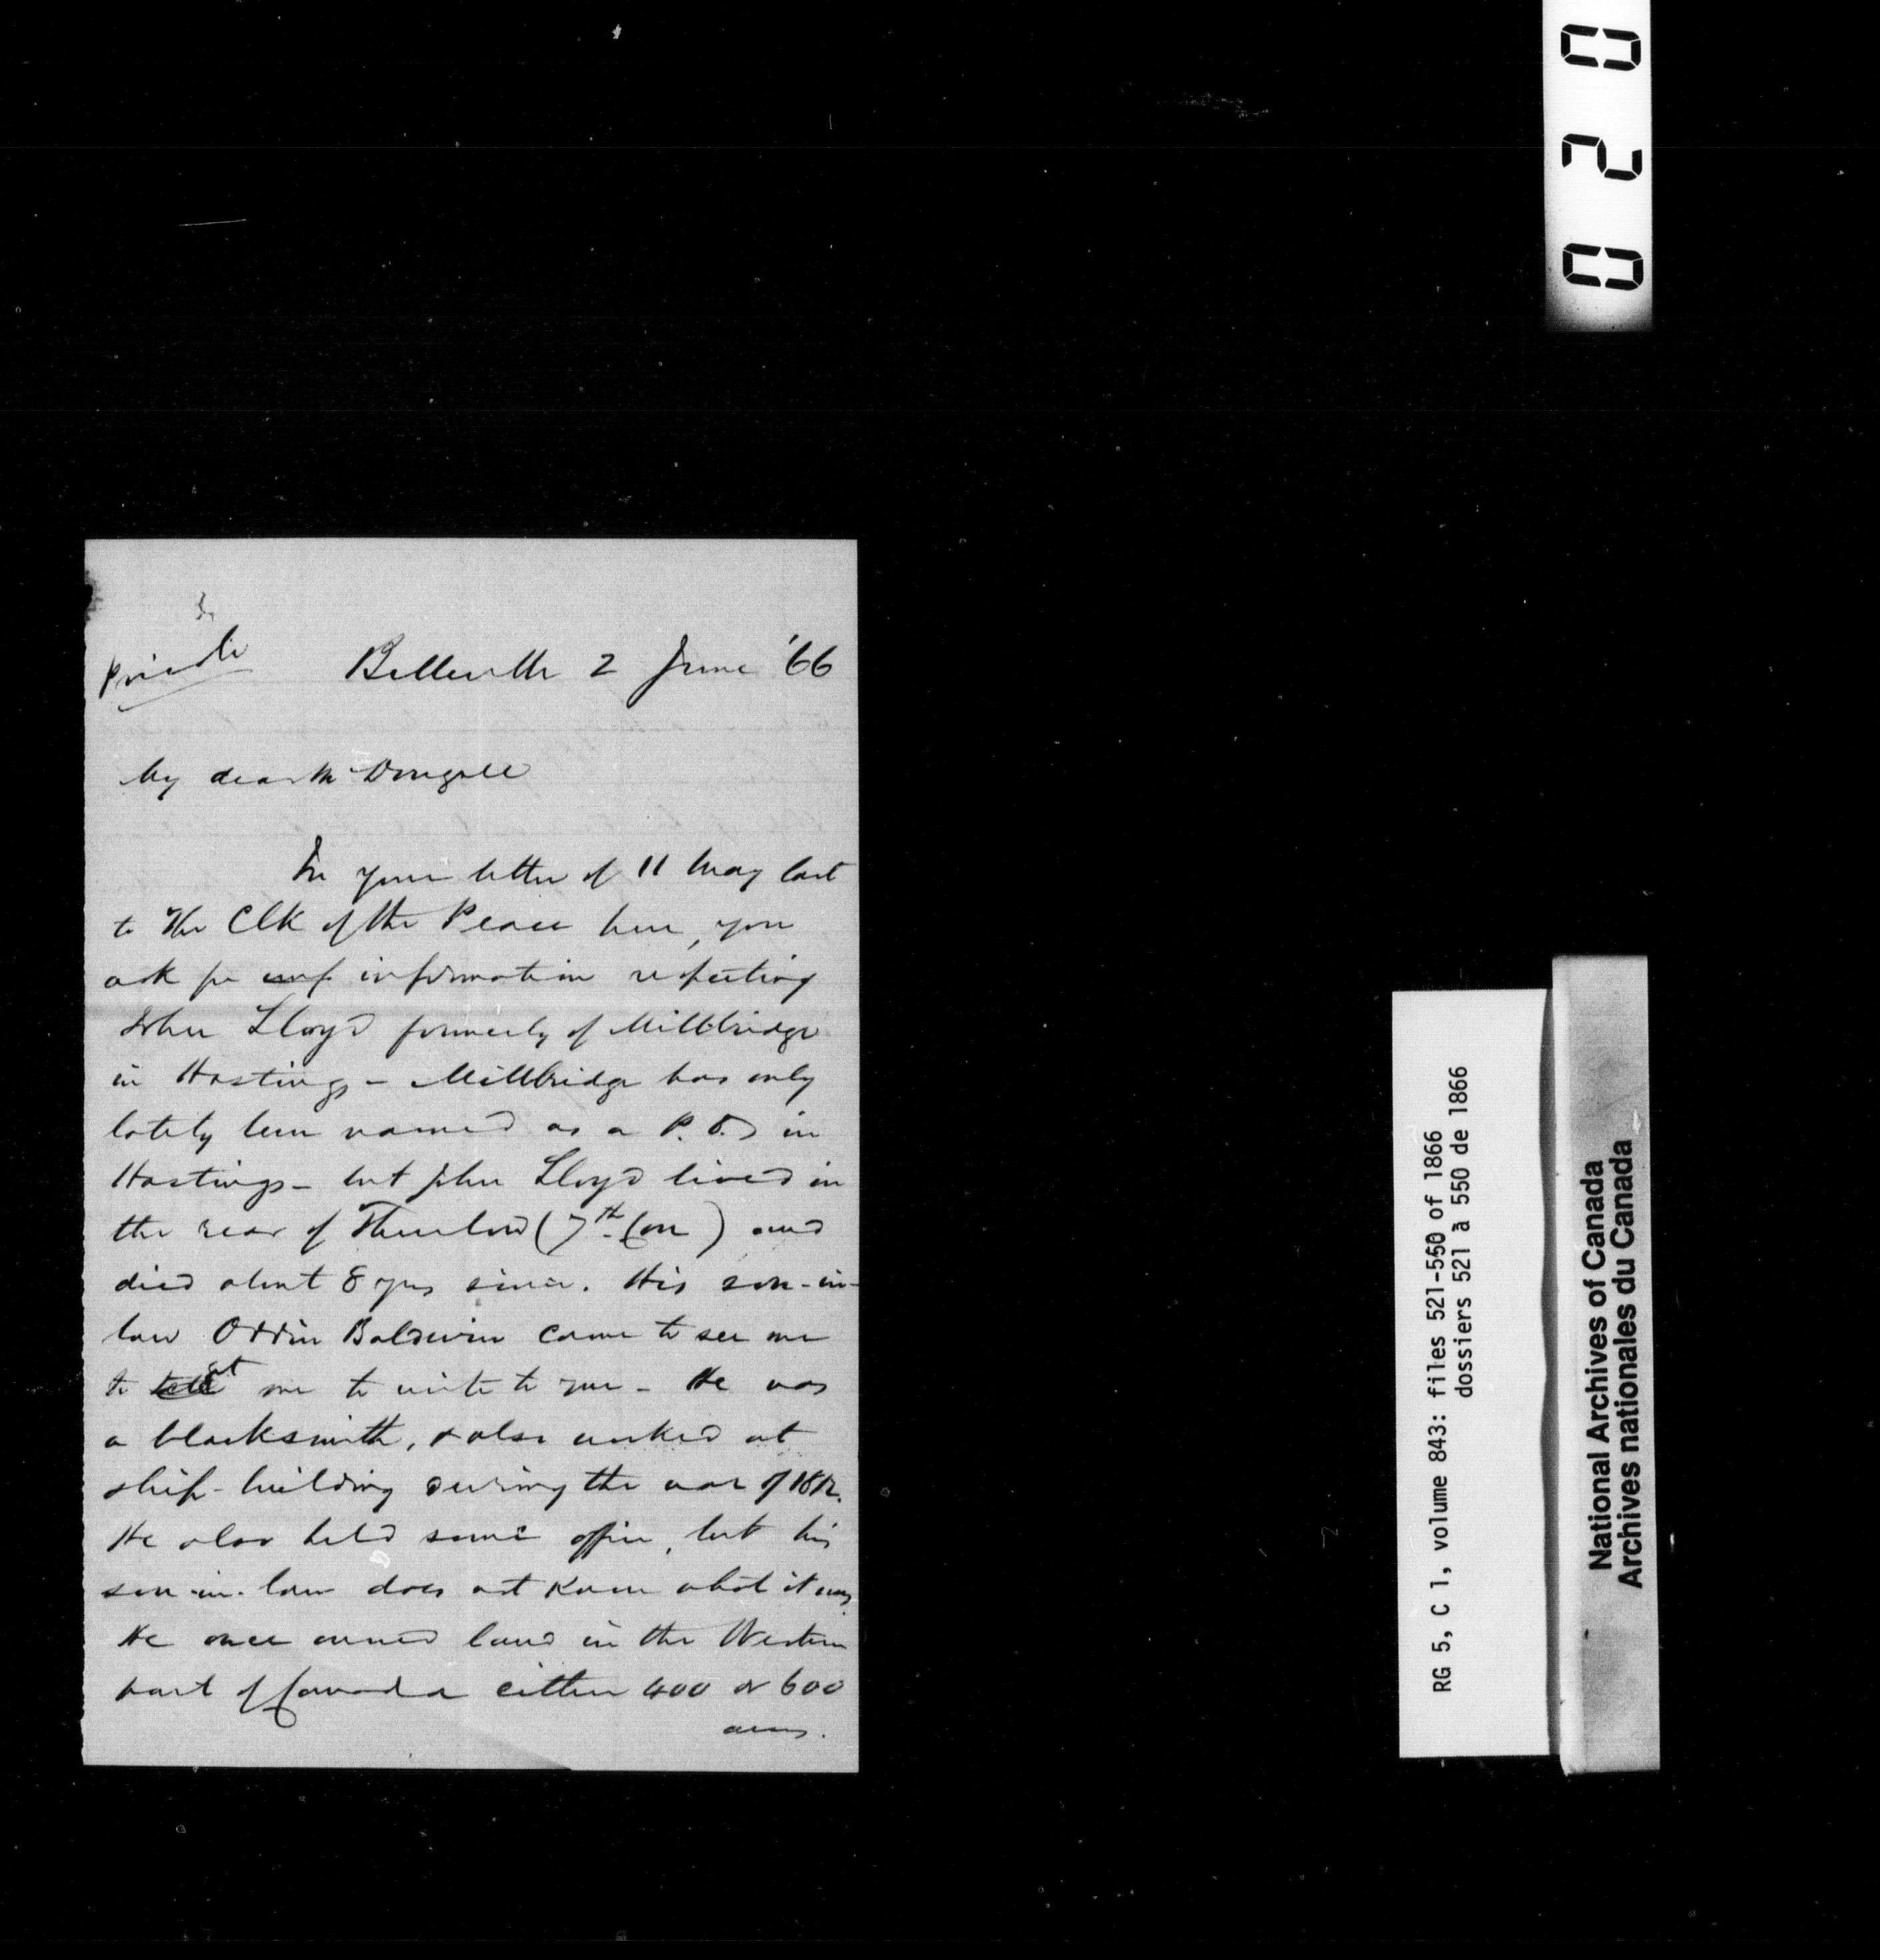 0 2 0
Private
Belleville 2 June '66
My dear McDougall
In your letter of 11 May last
to the Clk of the Peace here, you
ask for information respecting
John Lloyd formerly of Millbridge
in Hastings - Millbridge has only
lately been named as a P.O. in
Hastings - but John Lloyd lived in
the rear of Thurlow (7th Con) and
died about 8 yrs since. His son-in-
law Orrin Baldwin came to see me
to get me to write to you - He was
a blacksmith, & also worked at
ship-building during the war of 1812.
He also held some office, but his
son-in-law does not know what it was
He once owned land in the Western
part of Canada either 400 or 600
acres.
RG 5, C 1, volume 843: files 521-550 of 1866
dossiers 521 à 550 de 1866
National Archives of Canada
Archives nationales du Canada